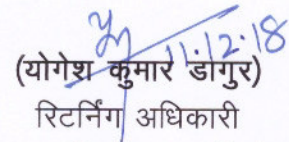 11.12.18
(योगेश कुमार डागुर)
रिटर्निंग अधिकारी